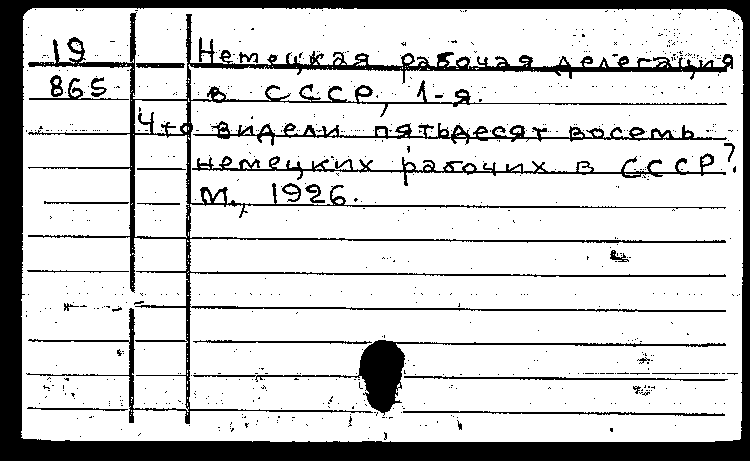 19 Немецкая рабочая делегация
865 в СССР, 1-я.
Что видели пятьдесят восемь
немецких рабочих в СССР?
М., 1926.